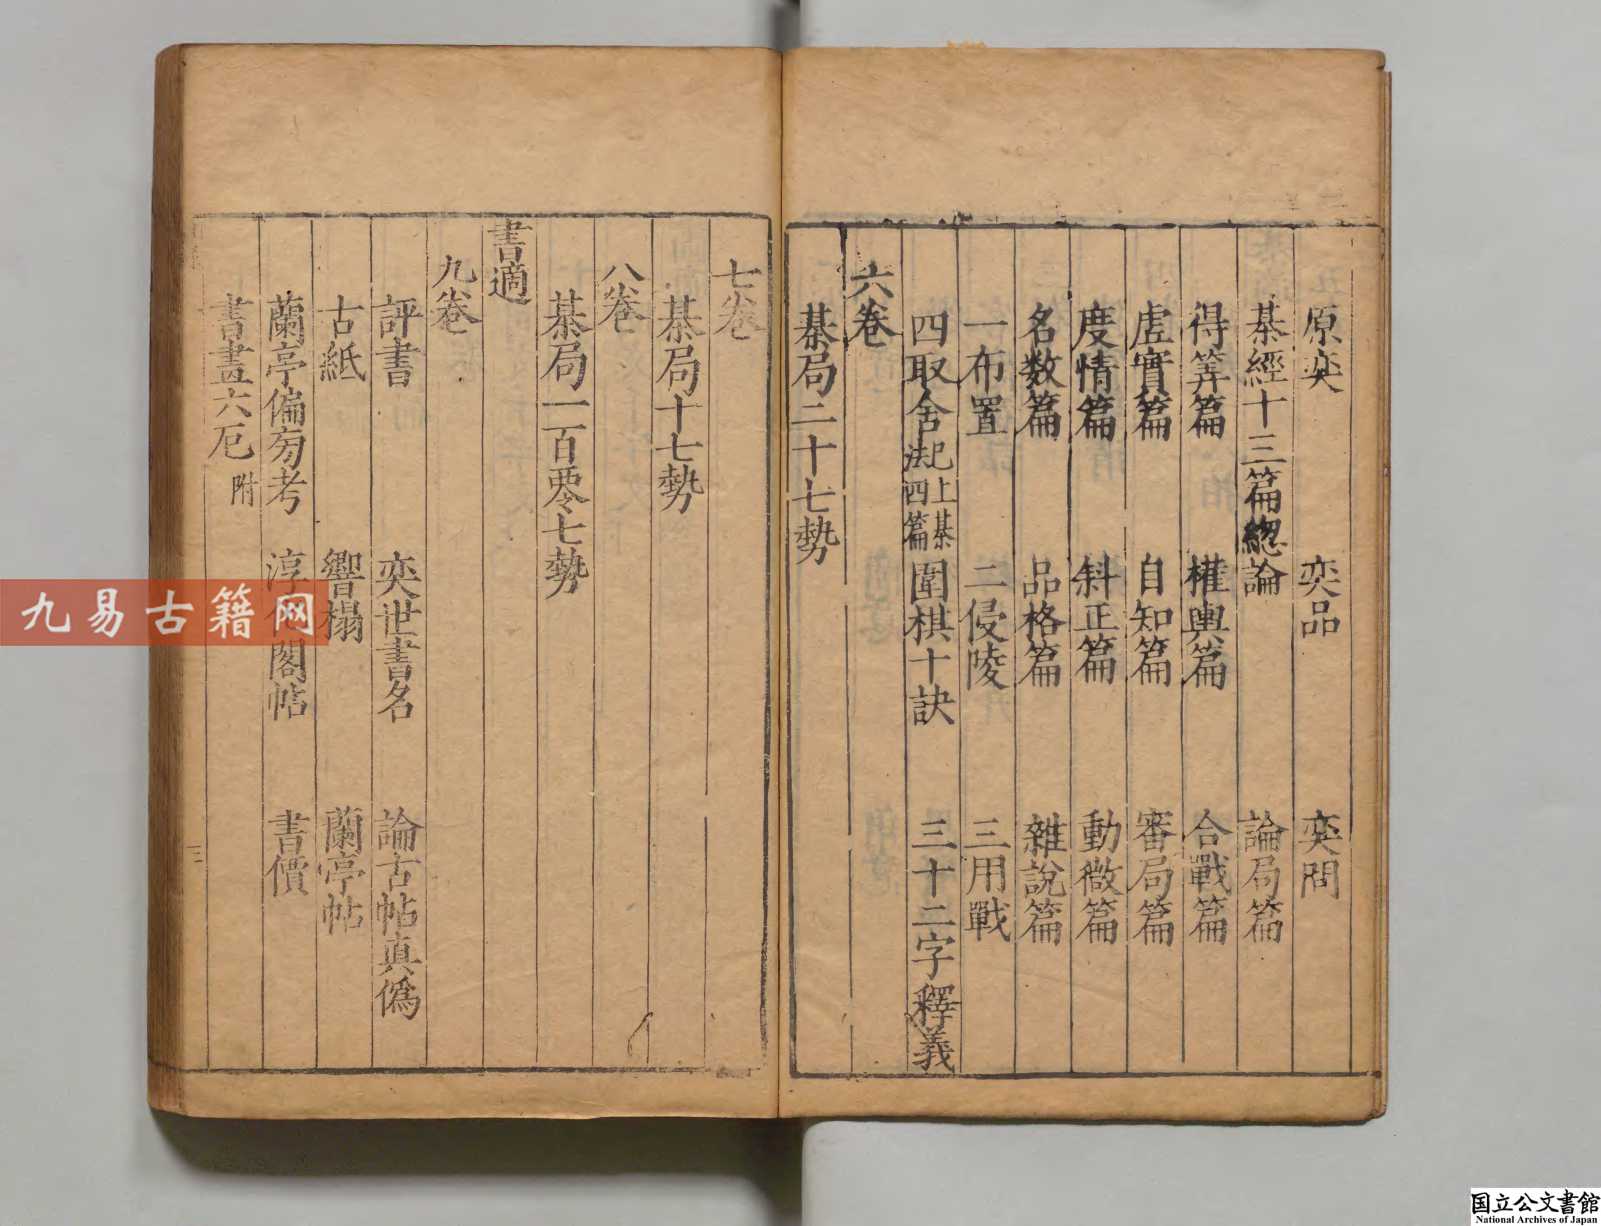 原奕 奕品 奕問
棊經十三篇緫論 論局篇
得筭篇 權輿篇 合戰篇
虛實篇 自知篇 審局篇
度情篇 斜正篇 動微篇
名数篇 品格篇 雜說篇
一布置 二侵陵 三用戰
四取舍 已上棊法四篇 圍棋十訣 三十二字釋義
六卷
棊局二十七勢
七卷
棊局十七勢
八卷
棊局一百零七勢
書適
九卷
評書 奕世書名 論古帖真僞
古紙 響榻 蘭亭帖
蘭亭偏旁考 淳化閣帖 書價
書畫六厄 附
三
九易古籍网
国立公文書館
National Archives of Japan